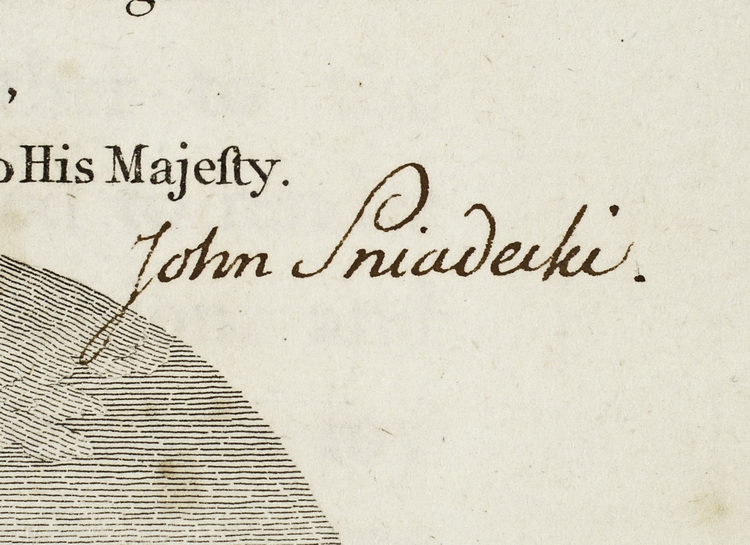 g
,
o His Majeſty.
John Sniadecki.